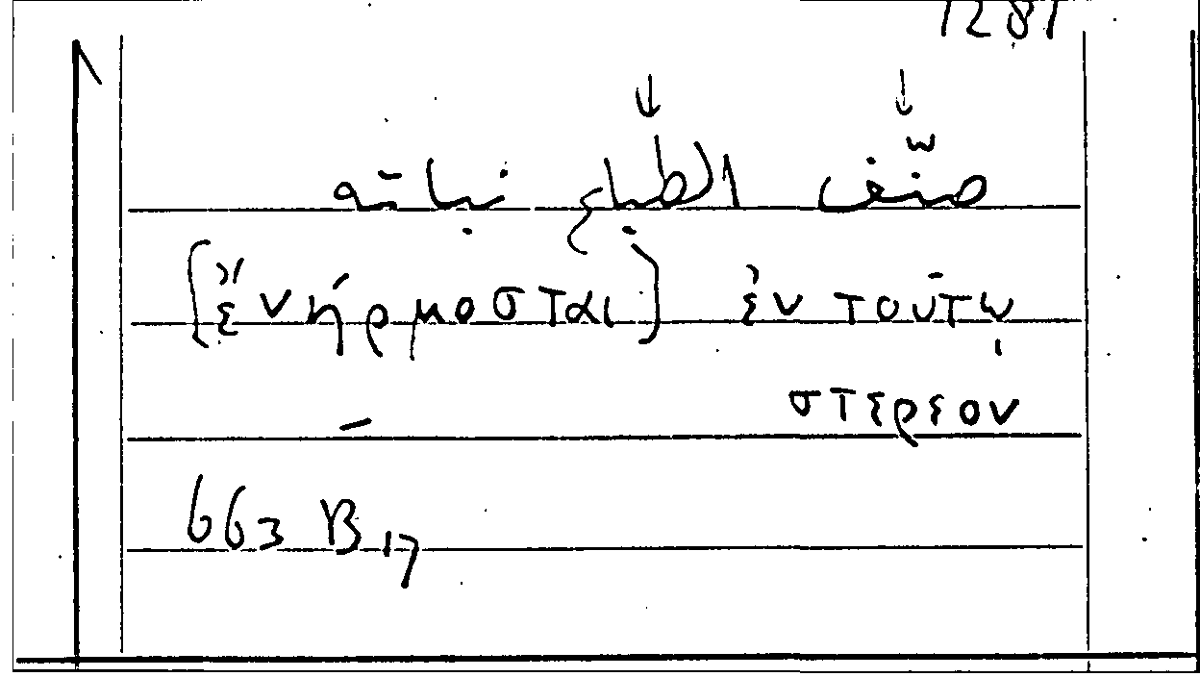 1281
صنّف الطباع نباته
[ἔνήρμοσται] ἐν τούτῳ
στερεον
663 B 17